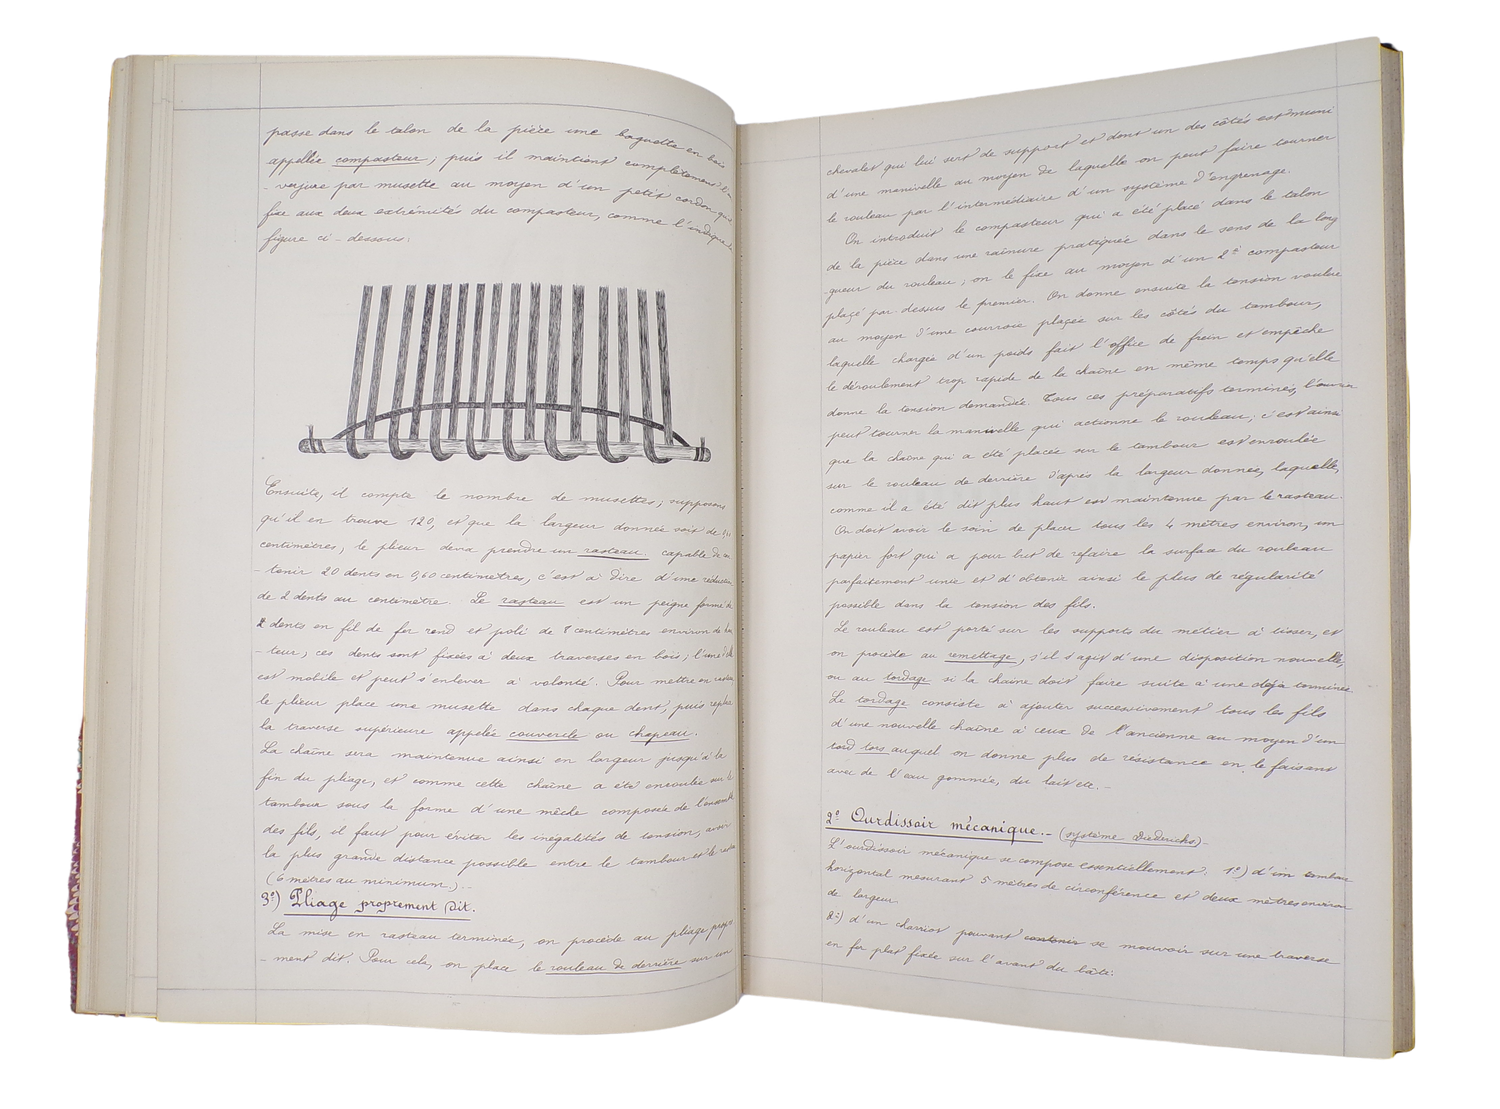 passe dans le talon de la pièce une baguette en bois
appellée compasteur; puis il maintient complètement l'en
-verjure par musette au moyen d'un petit cordon qu'il
fixe aux deux extrémités du compasteur, comme l'indique la
figure ci-dessous:
Ensuite, il compte le nombre de musettes; supposons
qu'il en trouve 120, et que la largeur donnée soit de
centimètres; le plieur devra prendre un rasteau capable de con
-tenir 20 dents en 0,60 centimètres, c'est à dire d'une réduction
de 2 dents au centimètre. Le rasteau est un peigne formé de
dents en fil de fer rond et poli de 8 centimètres environ de hau
-teur; ces dents sont fixées à deux traverses en bois; l'une d'elle
est mobile et peut s'enlever à volonté. Pour mettre en rasteau
le plieur place une musette dans chaque dent, puis replace
la traverse supérieure appelée couvercle ou chapeau.
La chaîne sera maintenue ainsi en largeur jusqu'à la
fin du pliage, et comme cette chaîne a été enroulée sur le
tambour sous la forme d'une mèche composée de l'ensemble
des fils, il faut pour éviter les inégalités de tension, avoir
la plus grande distance possible entre le tambour et le rasteau
(6 mètres au minimum).-
3º) Pliage proprement dit.
La mise en rasteau terminée, on procède au pliage propre
-ment dit. Pour cela, on place le rouleau de derrière sur un
chevalet qui lui sert de support et dont un des côtés est muni
d'une manivelle au moyen de laquelle on peut faire tourner
le rouleau par l'intermédiaire d'un système d'engrenage.
On introduit le compasteur qui a été placé dans le talon
de la pièce dans une rainure pratiquée dans le sens de la long
-gueur du rouleau; on le fixe au moyen d'un 2e compasteur
placé par dessus le premier. On donne ensuite la tension voulue
au moyen d'une courroie placée sur les côtés du tambour,
laquelle chargée d'un poids fait l'office de frein et empêche
le déroulement trop rapide de la chaîne en même temps qu'elle
donne la tension demandée. Tous ces préparatifs terminés, l'ouvrier
peut tourner la manivelle qui actionne le rouleau; c'est ainsi
que la chaîne qui a été placée sur le tambour est enroulée
sur le rouleau de derrière d'après la largeur donnée, laquelle,
comme il a été dit plus haut est maintenue par le rasteau.
On doit avoir le soin de placer tous les 4 mètres environ, un
papier fort qui a pour but de refaire la surface du rouleau
parfaitement unie et d'obtenir ainsi le plus de régularité
possible dans la tension des fils.
Le rouleau est porté sur les supports du métier à tisser, et
on procède au remettage, s'il s'agit d'une disposition nouvelle,
ou au tordage si la chaîne doit faire suite à une déjà terminée.
Le tordage consiste à ajouter successivement tous les fils
d'une nouvelle chaîne à ceux de l'ancienne au moyen d'un
tord tors auquel on donne plus de résistance en le faisant
avec de l'eau gommée, du lait etc.-
2º Ourdissoir mécanique.- (système Diederichs)-
L'ourdissoir mécanique se compose essentiellement: 1º) d'un tambour
horizontal mesurant 5 mètres de circonférence et deux mètres environ
de largeur.
2º) d'un charriot pouvant contenir se mouvoir sur une traverse
en fer plat fixée sur l'avant du bâti.